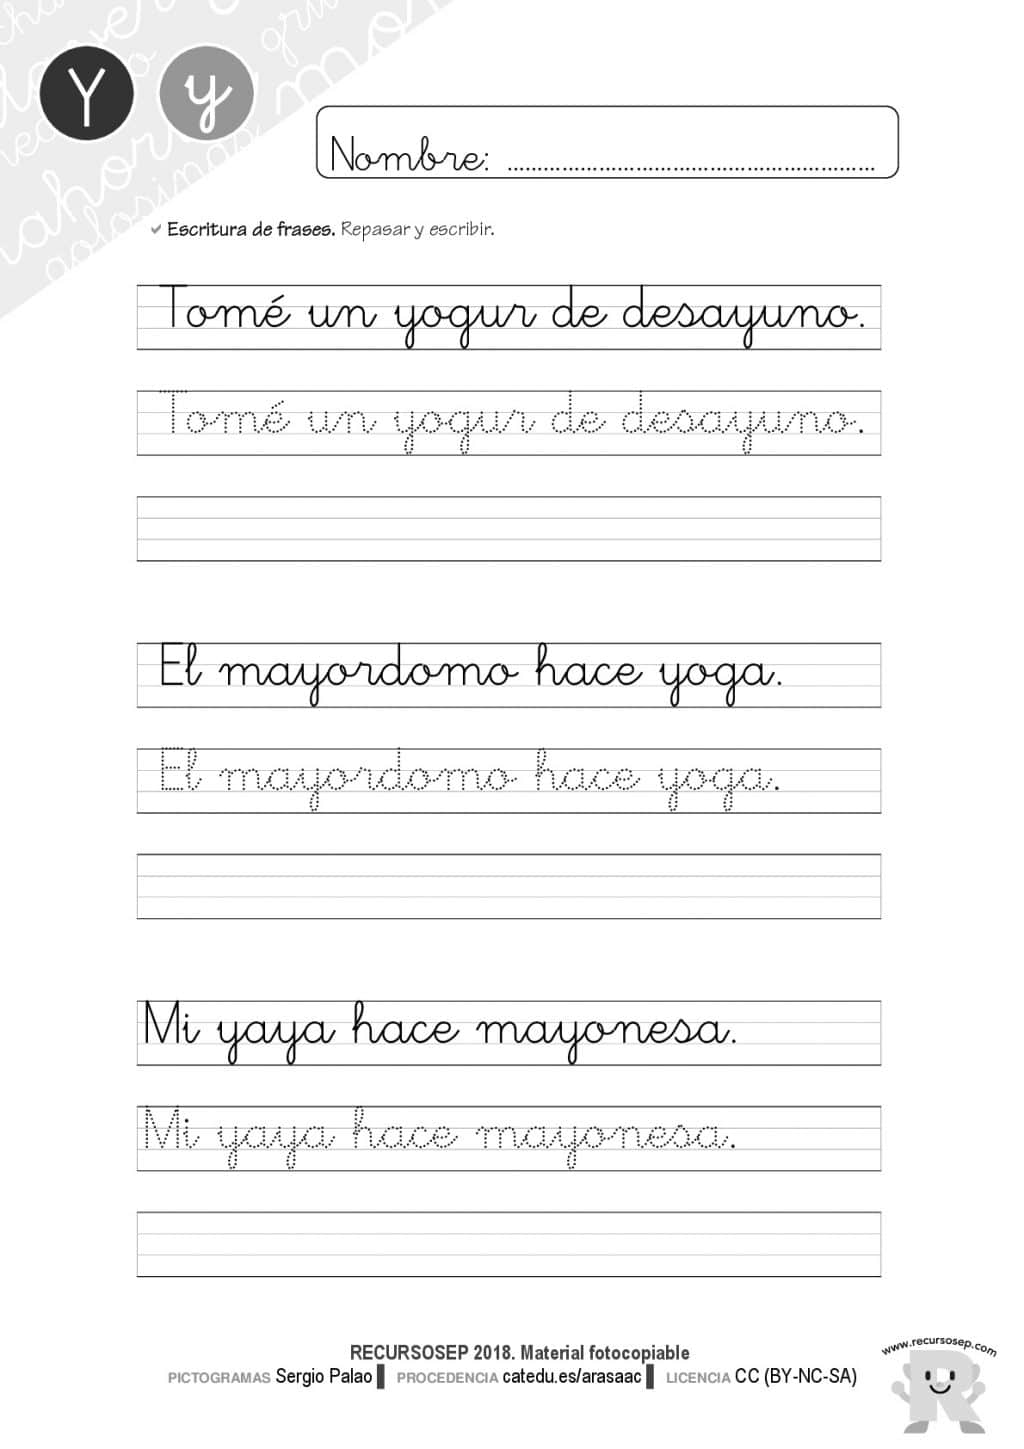 Y y
Nombre: ............................................................
Escritura de frases. Repasar y escribir.
Tomé un yogur de desayuno.
Tomé un yogur de desayuno.
El mayordomo hace yoga.
El mayordomo hace yoga.
Mi yaya hace mayonesa.
Mi yaya hace mayonesa.
RECURSOSEP 2018. Material fotocopiable
PICTOGRAMAS Sergio Palao PROCEDENCIA catedu.es/arasaac LICENCIA CC (BY-NC-SA)
www.recursosep.com
R